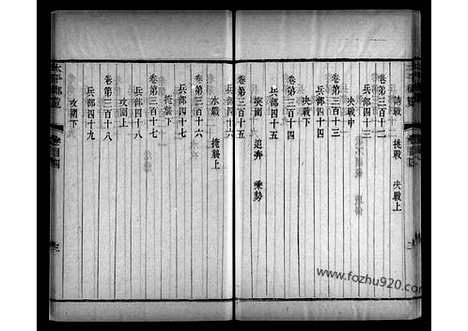 請戰 挑戰 決戰上
卷第三百十二
兵部四十三
決戰中
卷第三百十三
兵部四十四
決戰下
卷第三百十四
兵部四十五
突圍 追奔 乘勢
卷第三百十五
兵部四十六
水戰 掩襲上
卷第三百十六
兵部四十七
掩襲下
卷第三百十七
兵部四十八
攻圍上
卷第三百十八
兵部四十九
攻圍下
www.fozhu920.com